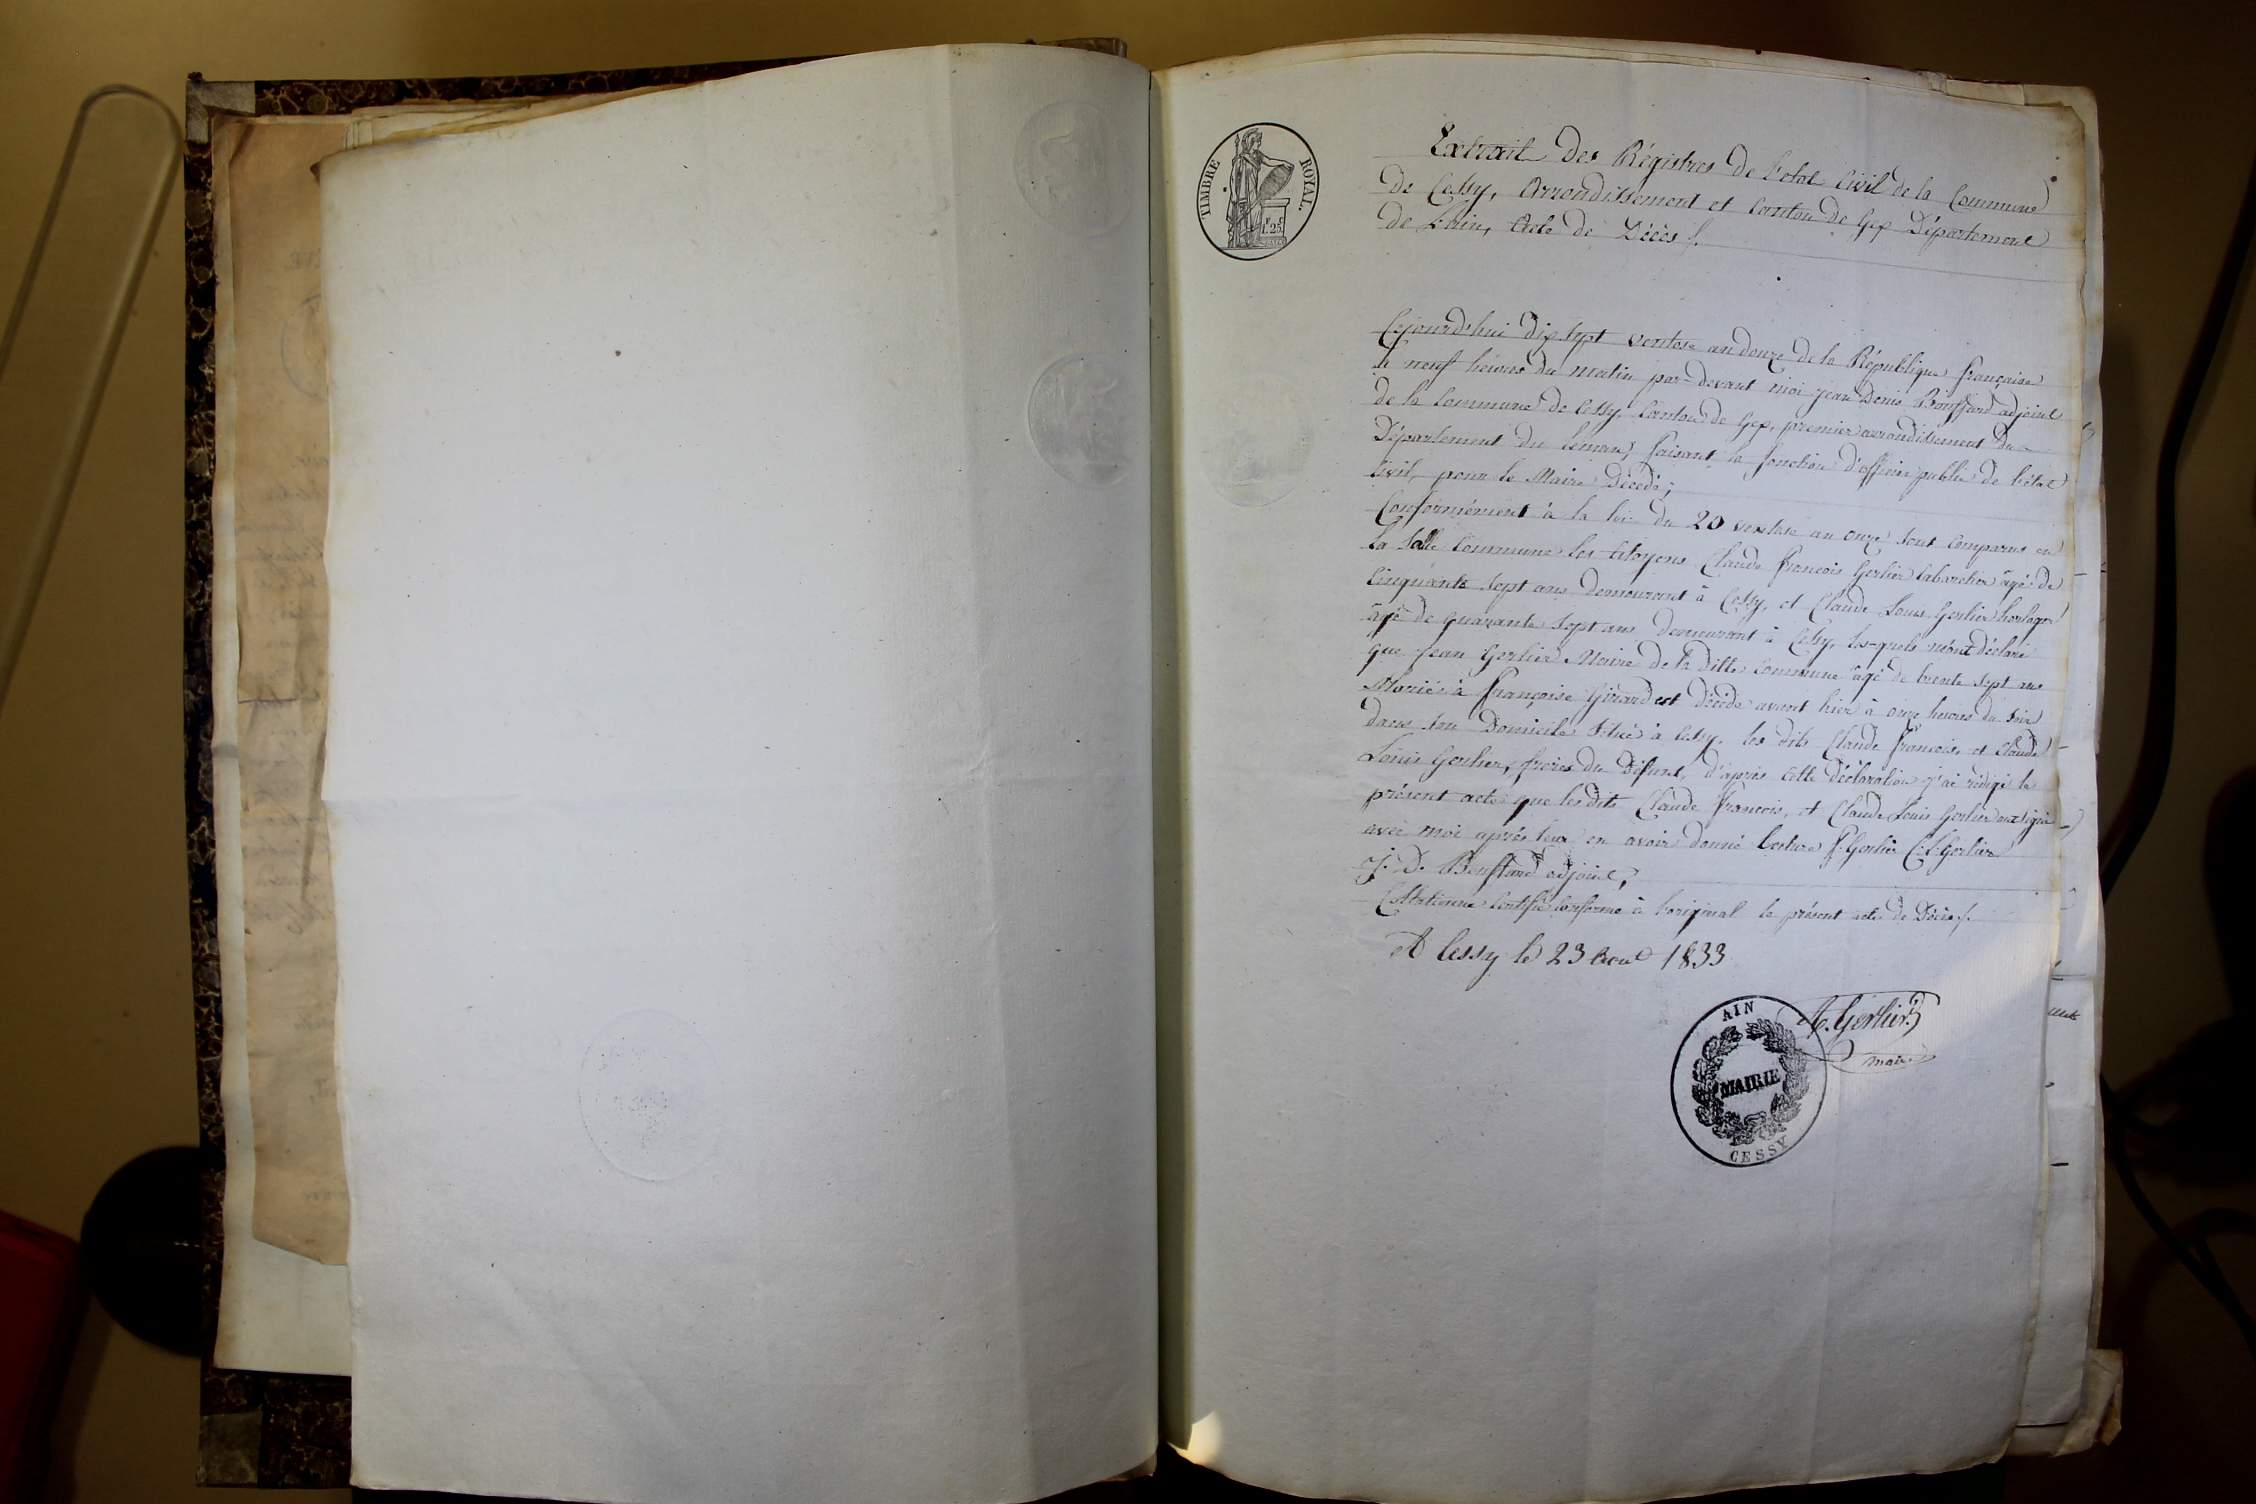 TIMBRE ROYAL.
F. C.
1. 25
Extrait des Régistres de l'etat Civil de la Commune
de Cessy, Arrondissement et Canton de Gex Département
de L'ain, Acte de Décès ./.
Cejourd'hui dix sept ventose an douze de la République française
à neuf heures du matin par-devant moi jean Denis Bouffard adjoint
de la Commune de Cessy, Canton de Gex, premier arrondissement du
Département du Leman, faisant la fonction d'officier public de l'état
Civil, pour le Maire Décédé;
Conformément à la loi du 20 ventose an onze sont comparus en
la Salle Commune les Citoyens Claude François Gerlier Cabaretier âgé de
Cinquante Sept ans demeurant à Cessy, et Claude Louis Gerlier horloger
âgé de quarante Sept ans demeurant à Cessy, les-quels m'ont déclaré
que Jean Gerlier Maire de la ditte Commune âgé de trente sept ans
Marié à Françoise Girard est décédé avant hier à onze heures du soir
dans son Domicile Situé à Cessy. les dits Claude François, et Claude
Louis Gerlier, frères du Défunt, d'après cette déclaration j'ai rédigé le
présent acte que les dits Claude François, et Claude Louis Gerlier ont signé
avec moi après leur en avoir donné lecture f. Gerlier C. L. Gerlier
J. D. Bouffard adjoint;
Certifié Conforme à l'original le présent acte de Décès ./.
A Cessy le 23 1833
A. Gerlier
maire
AIN
MAIRIE
CESSY